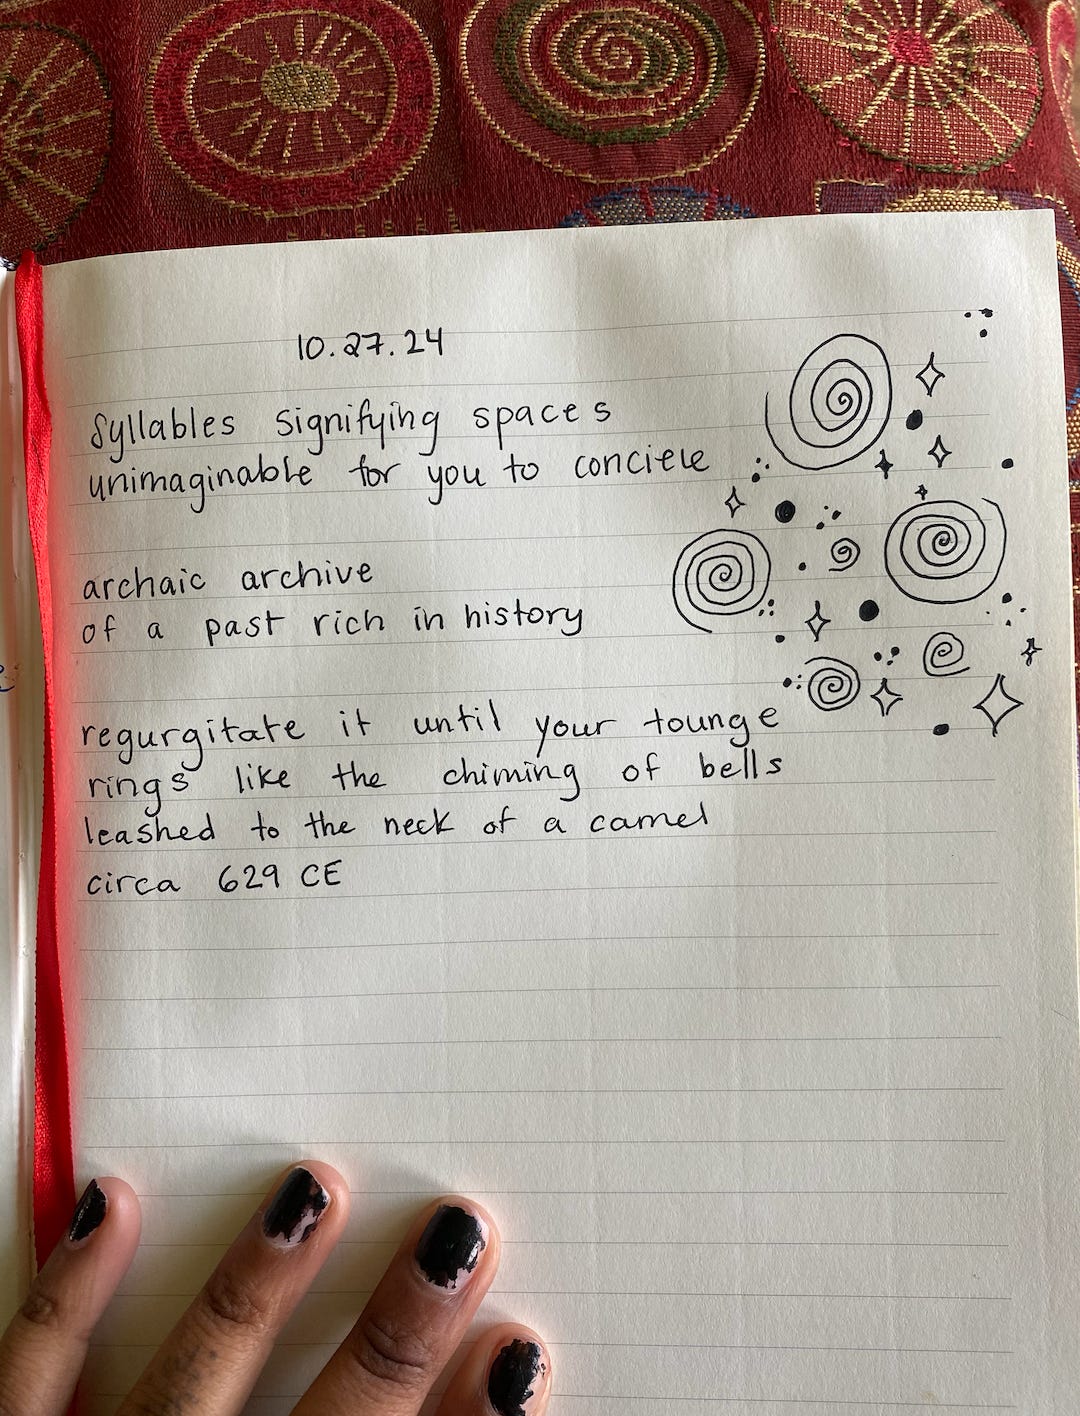 10.27.24
Syllables signifying spaces
unimaginable for you to conciele
archaic archive
of a past rich in history
regurgitate it until your tounge
rings like the chiming of bells
leashed to the neck of a camel
circa 629 CE